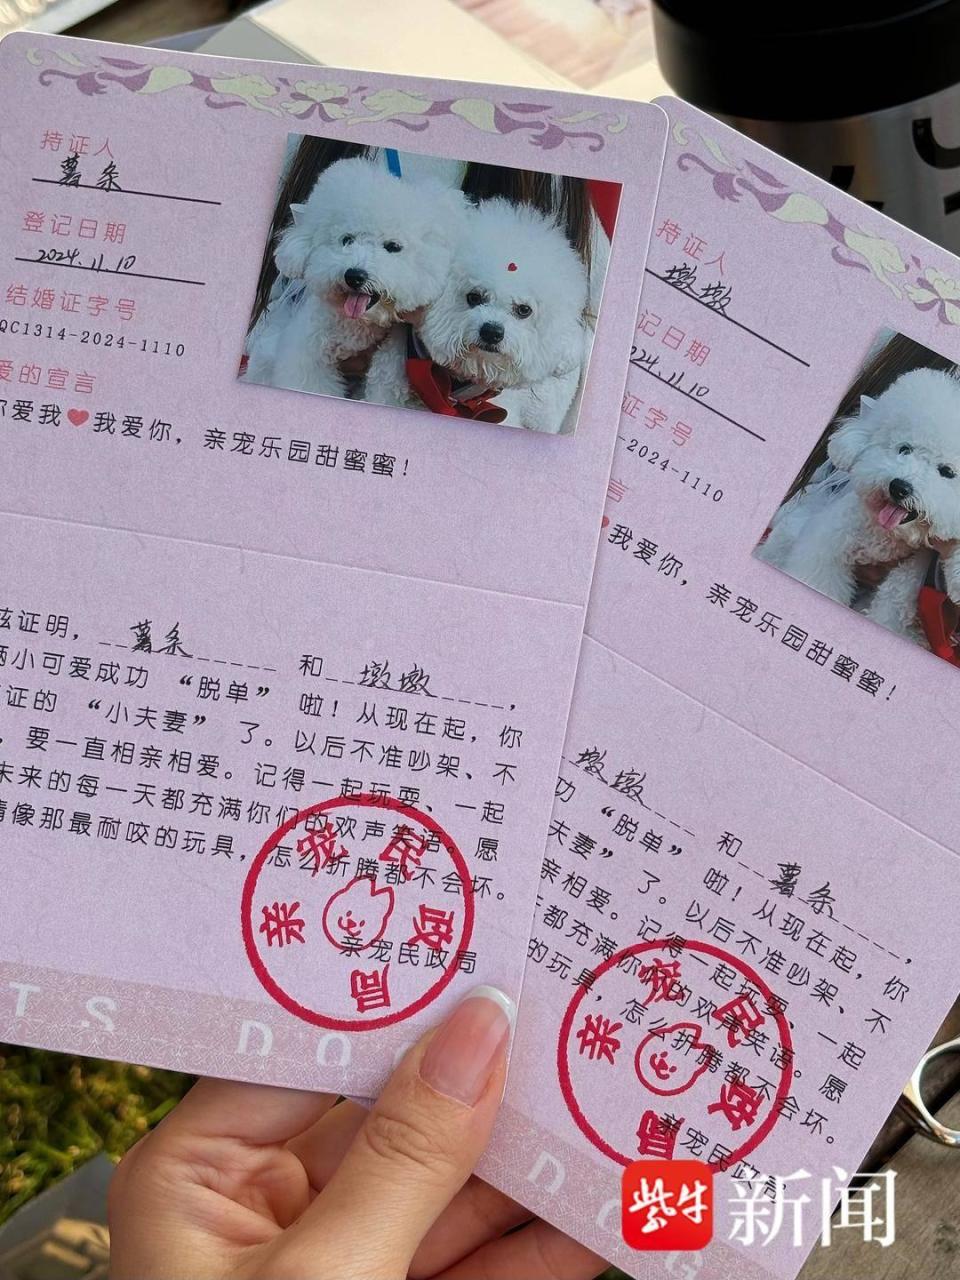 持证人
薯条
登记日期
2024.11.10
结婚证字号
QC1314-2024-1110
爱的宣言
你爱我❤我爱你，亲宠乐园甜蜜蜜！
兹证明，薯条 和 墩墩，
两小可爱成功“脱单”啦！从现在起，你
证的“小夫妻”了。以后不准吵架、不
，要一直相亲相爱。记得一起玩耍、一起
未来的每一天都充满你们的欢声笑语。愿
情像那最耐咬的玩具，怎么折腾都不会坏。
亲宠民政局
亲宠民政局
TS DOG
持证人
墩墩
记日期
2024.11.10
证字号
-2024-1110
言
❤我爱你，亲宠乐园甜蜜蜜！
墩墩 和 薯条，
功“脱单”啦！从现在起，你
夫妻”了。以后不准吵架、不
亲相爱。记得一起玩耍、一起
都充满你们的欢声笑语。愿
的玩具，怎么折腾都不会坏。
亲宠民政局
亲宠民政局
DOG
紫牛新闻